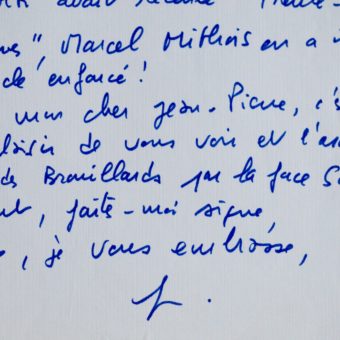 avant
", Marcel Mithois en a
de enfoncé !
mon cher Jean-Pierre, c'
laisir de vous voir et l'
des Brouillards par la face S
, faites-moi signe,
, je vous embrasse,